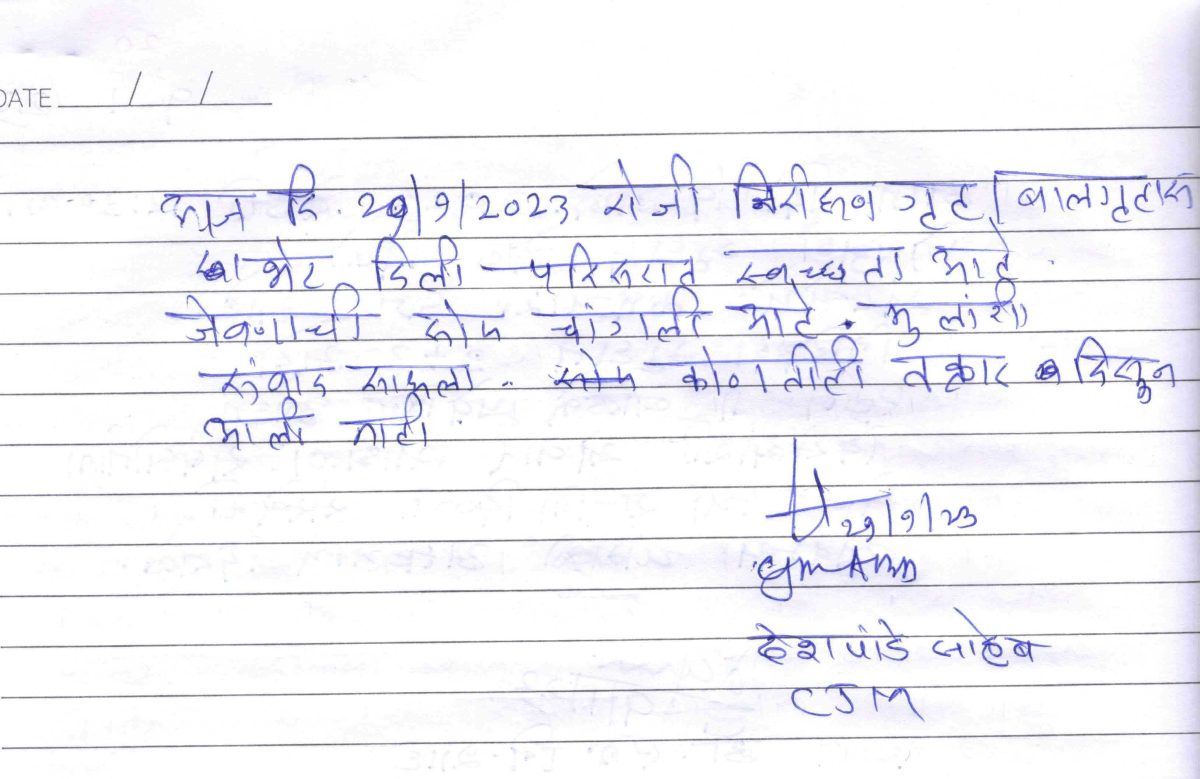 DATE / /
आज दि. 29/9/2023 रोजी निरीक्षण गृह / बालगृहास
भेट दिली परिसरात स्वच्छता आहे.
जेवणाची सोय चांगली आहे. मुलांशी
संवाद साधला. कोणतीही तक्रार दिसून
आली नाही
29/9/23
CJM
देशपांडे साहेब
CJM